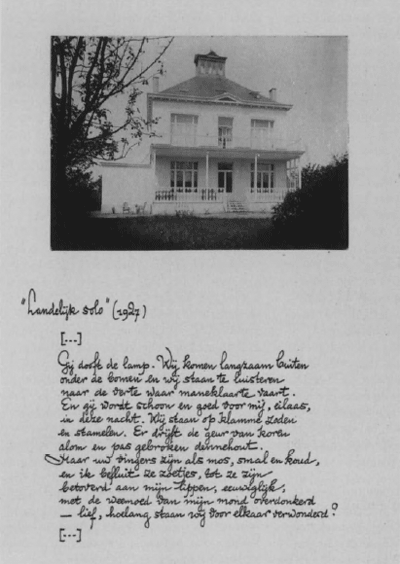 "Landelijk solo" (1927)
[...]
Gij dooft de lamp. Wij komen langzaam buiten
onder de bomen en wij staan te luisteren
naar de verte waar maneklaarte vaart.
En gij wordt schoon en goed voor mij, eilaas,
in deze nacht. Wij staan op klamme zoden
en stamelen. Er drijft de geur van koren
alom en pas gebroken dennehout.
Maar uw vingers zijn als mos, smal en koud,
en ik befluit ze zoetjes, tot ze zijn
betoverd aan mijn lippen, eeuwiglijk,
met de weemoed van mijn mond overdonkerd
— lief, hoelang staan wij voor elkaar verwonderd?
[...]